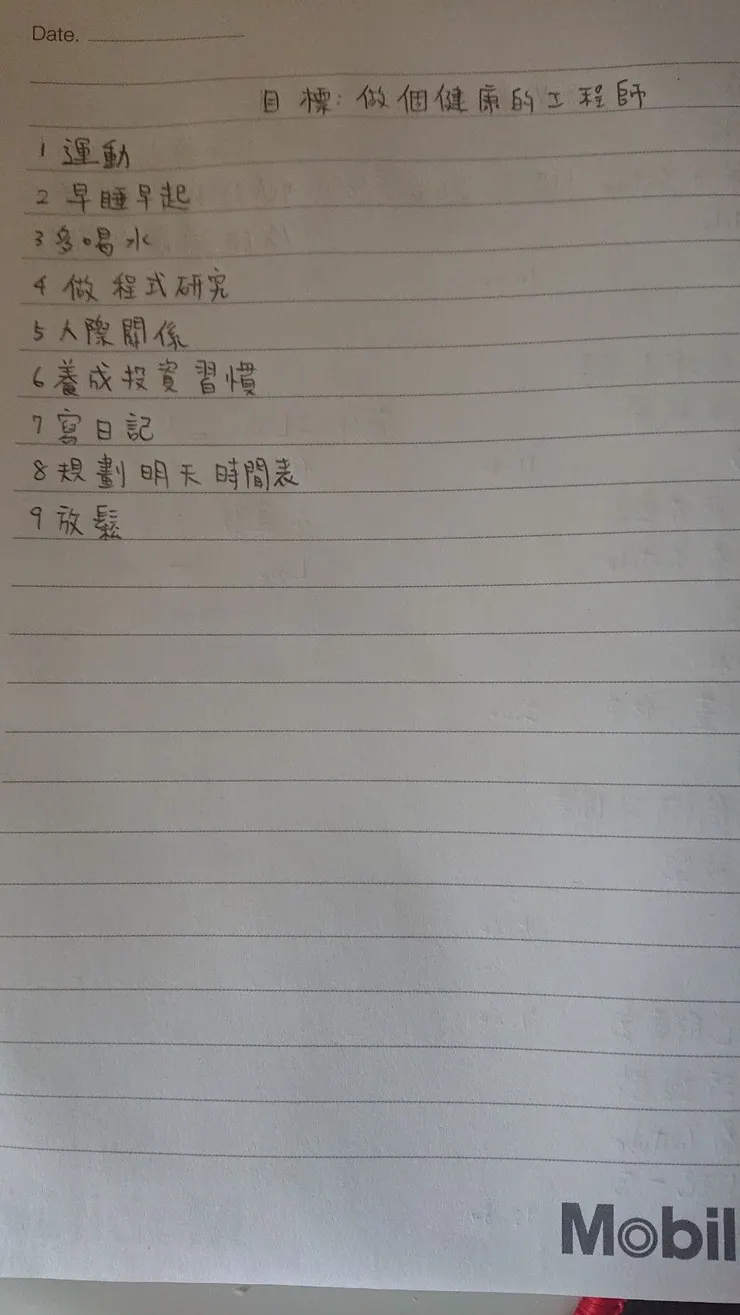 Date.
目標:做個健康的工程師
1 運動
2 早睡早起
3 多喝水
4 做程式研究
5 人際關係
6 養成投資習慣
7 寫日記
8 規劃明天時間表
9 放鬆
Mobil